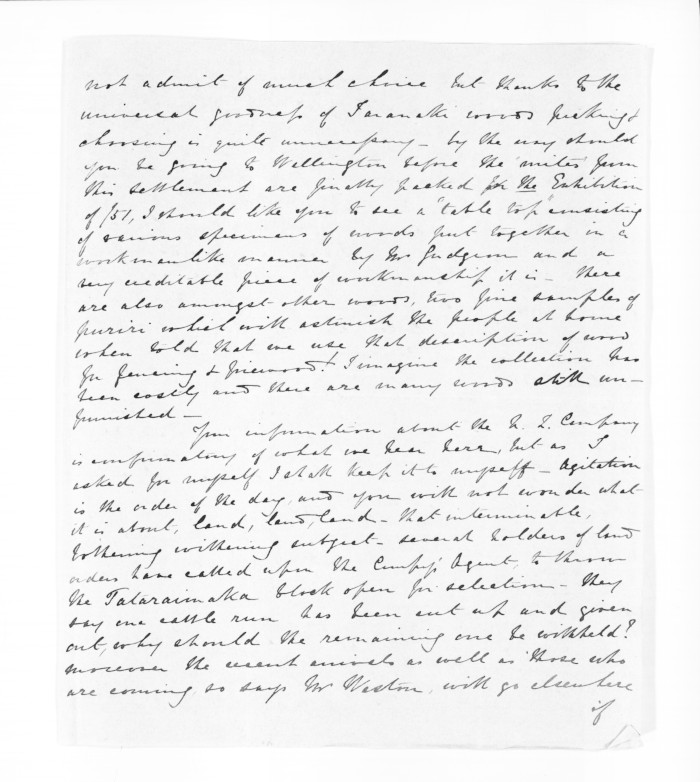 not admit of much choice but thanks to the
universal goodness of Taranaki woods picking &
choosing is quite unnecessary – by the way should
you be going to Wellington before the  from
this settlement are finally packed for the Exhibition
of /51, I should like you to see a "table top" consisting
of various specimens of woods put together in a
workmanlike manner by Mr Gudgeon and a
very creditable piece of workmanship it is – there
are also amongst other woods, two fine samples of
puriri which will astonish the people at home
when told that we use that description of wood
for fencing & firewood! I imagine the collection has
been costly and there are many woods still un-
furnished –
Your information about the N. Z. Company
is confirmatory of what we hear here, but as I
asked for myself I shall keep it to myself – Agitation
is the order of the day, and you will not wonder what
it is about, land, land, land – that interminable,
bothering withering subject – several holders of land
orders have called upon the Comp's Agent, to throw
the Tataraimaka block open for selection – they
say one cattle run has been cut up and given
out, why should the remaining one be withheld?
moreover the recent arrivals as well as those who
are coming so says Mr Weston, will go elsewhere
if